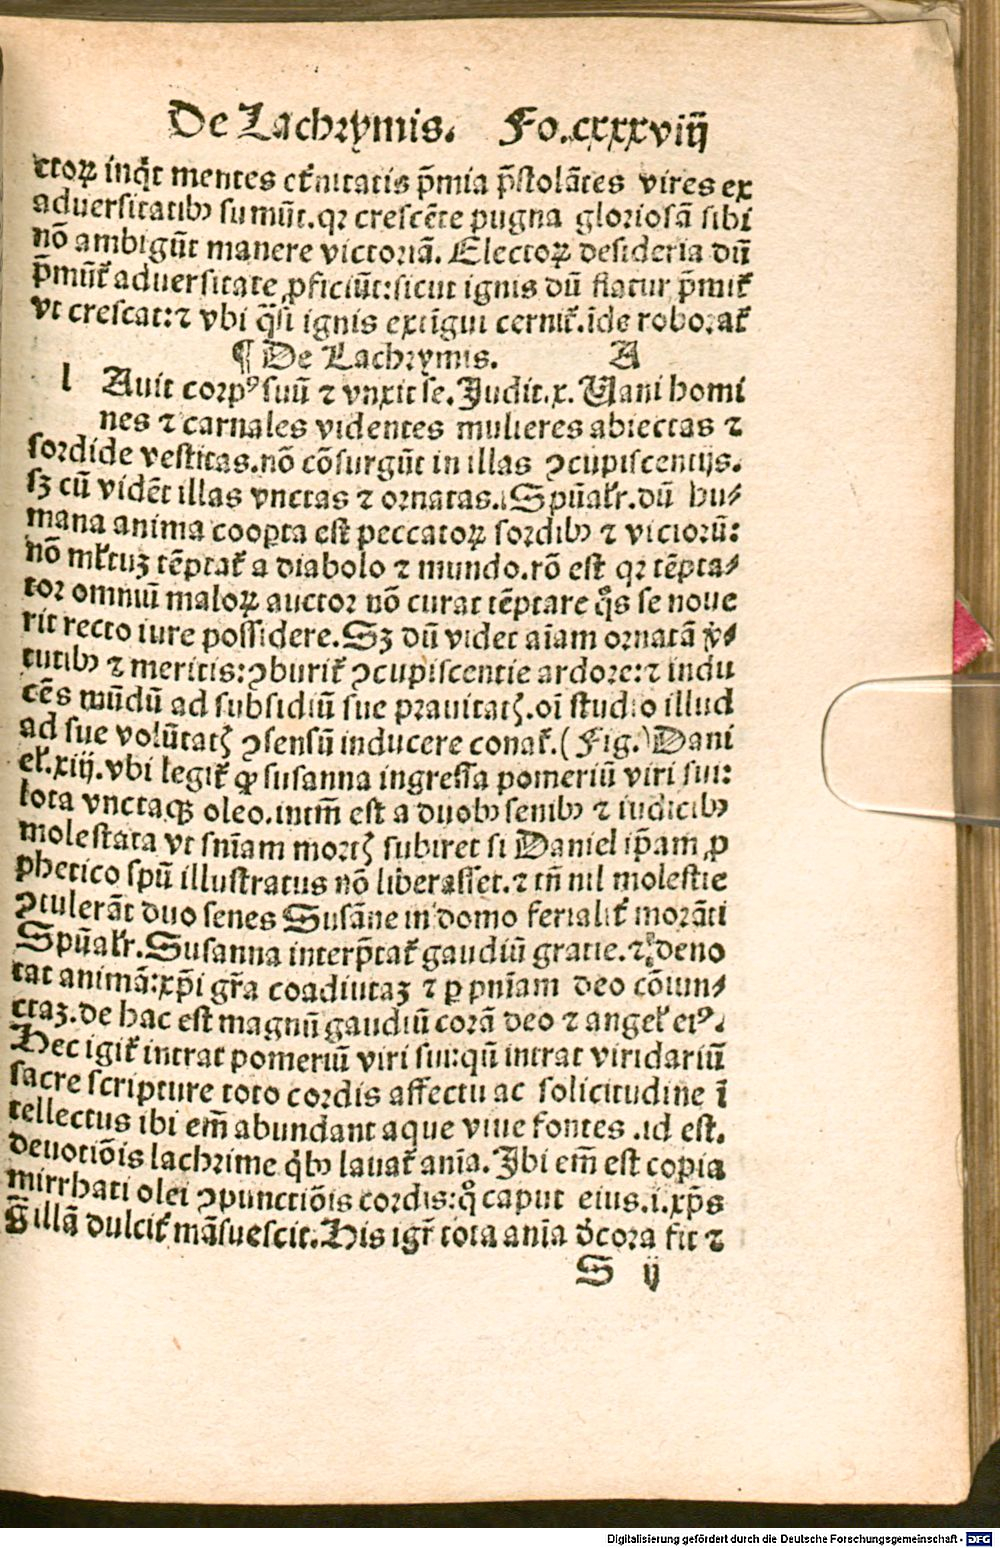 De Lachrymis. Fo.cxxxviij
ctoꝝ inq̇t mentes et̓nitatis p̄mia p̄stolātes vires ex
aduersitatibꝰ sumūt.qꝛ crescēte pugna gloriosā sibi
nō ambigūt manere victoriā. Electoꝝ desideria dū
p̄mūt̓ aduersitate ꝓficiūt:sicut ignis dū flatur p̄mit̓
vt crescat:⁊ vbi q̄si ignis extīgui cernit̓.īde roborat̓
¶ De Lachrymis. A
l Auit corpꝰ suū ⁊ vnxit se. Judit.x. Uani homi
nes ⁊ carnales videntes mulieres abiectas ⁊
sordide vestitas.nō cōsurgūt in illas ꝯcupiscentijs.
sꝫ cū vidēt illas vnctas ⁊ ornatas. Spūalr̓.dū hu⸗
mana anima cooꝑta est peccatoꝝ sordibꝰ ⁊ viciorū:
nō ml̓tuꝫ tēptat̓ a diabolo ⁊ mundo.rō est qꝛ tēpta⸗
tor omniū maloꝝ auctor nō curat tēptare q̊s se noue
rit recto iure possidere. Sꝫ dū videt aīam ornatā v̓⸗
tutibꝰ ⁊ meritis:ꝯburit̓ ꝯcupiscentie ardore:⁊ indu
cēs mūdū ad subsidiū sue prauitatꝭ.oī studio illud
ad sue volūtatꝭ ꝯsensū inducere conat̓.(Fig.) Dani
el̓.xiij.vbi legit̓ ꝙ susanna ingressa pomeriū viri sui:
lota vnctaqꝫ oleo.intm̄ est a duobꝰ senibꝰ ⁊ iudicibꝰ
molestata vt snīam mortꝭ subiret si Daniel ip̄am ꝓ
phetico spū illustratus nō liberasset.⁊ tn̄ nil molestie
ꝯtulerāt duo senes Susāne in domo ferialit̓ morāti
Spūalr̓.Susanna interp̄tat̓ gaudiū gratie.⁊ deno
tat animā:xp̄i gr̄a coadiutaꝫ ⁊ ꝑ pnīam deo cōiun⸗
ctaꝫ.de hac est magnū gaudiū corā deo ⁊ angel̓ eiꝰ.
Hec igit̓ intrat pomeriū viri sui:qū intrat viridariū
sacre scripture toto cordis affectu ac solicitudine ī
tellectus ibi em̄ abundant aque viue fontes .id est.
deuotiōis lachrime q̇bꝰ lauat̓ anīa. Ibi em̄ est copia
mirrhati olei ꝯpunctiōis cordis:q̊ caput eius.i.xp̄s
ḡ illā dulcit̓ māsuescit. His igr̄ tota anīa d̓cora fit ⁊
S ij
Digitalisierung gefördert durch die Deutsche Forschungsgemeinschaft - DFG